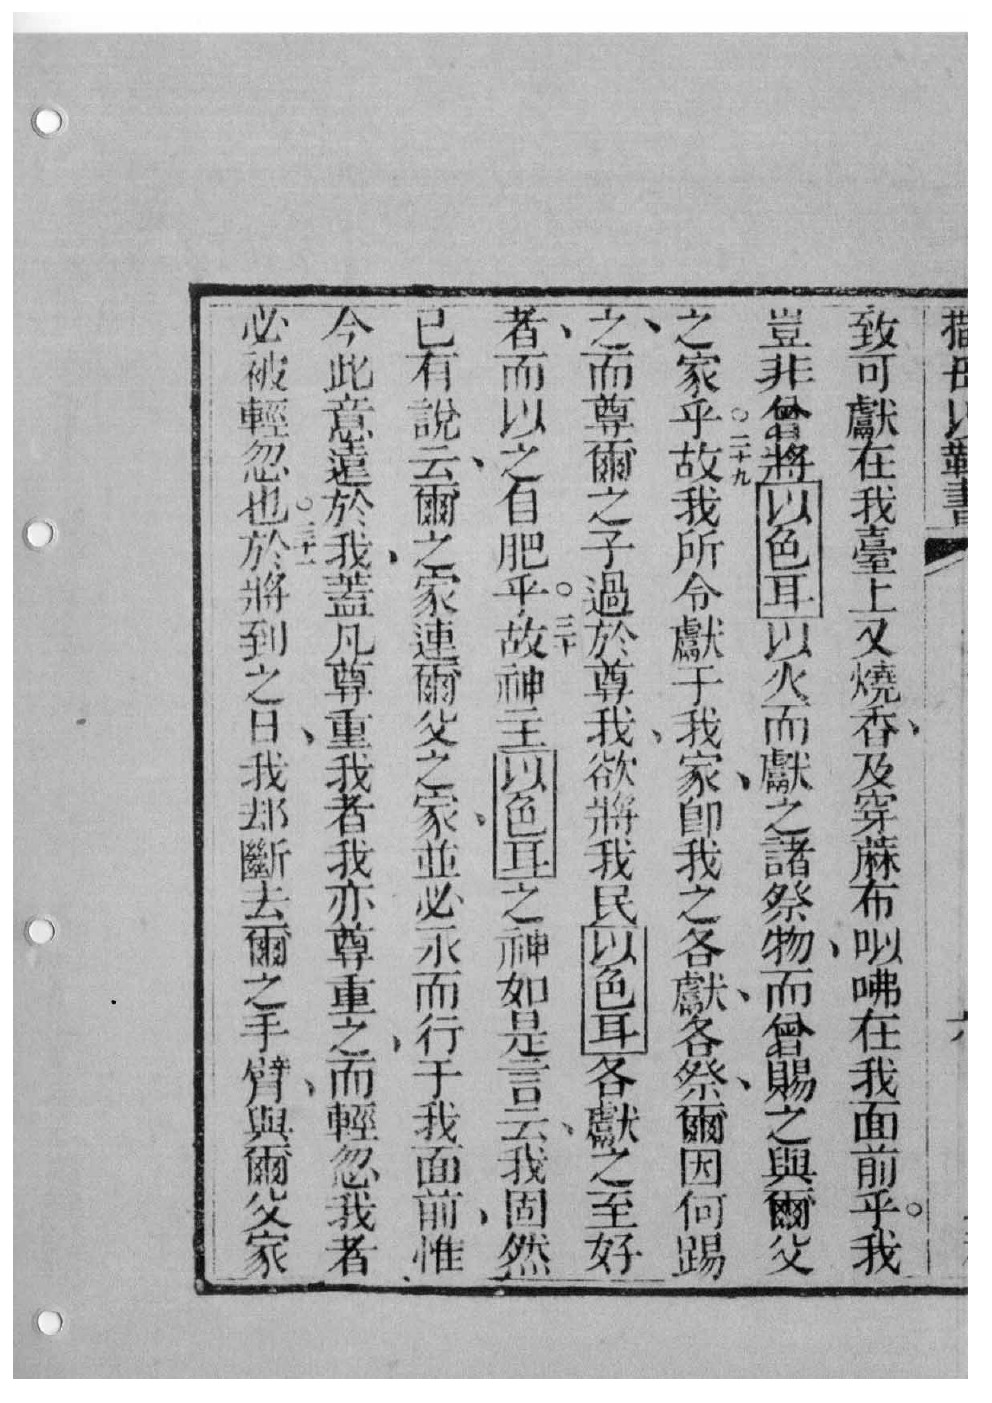 致可獻在我臺上又燒香、及穿蔴布㕥咈在我面前乎。我
豈非曾將以色耳以火而獻之諸祭物、而曾賜之與爾父
之家乎。二十九故我所令獻于我家、卽我之各獻、各祭、爾因何踢
之、而尊爾之子過於尊我、欲將我民以色耳各獻之至好
者、而以之自肥乎。三十故神主以色耳之神如是言云、我固然
已有說云、爾之家連爾父之家、並必永而行于我面前、惟
今此意遠於我、蓋凡尊重我者我亦尊重之、而輕忽我者
必被輕忽也。三十一於將到之日、我却斷去爾之手臂、與爾父家